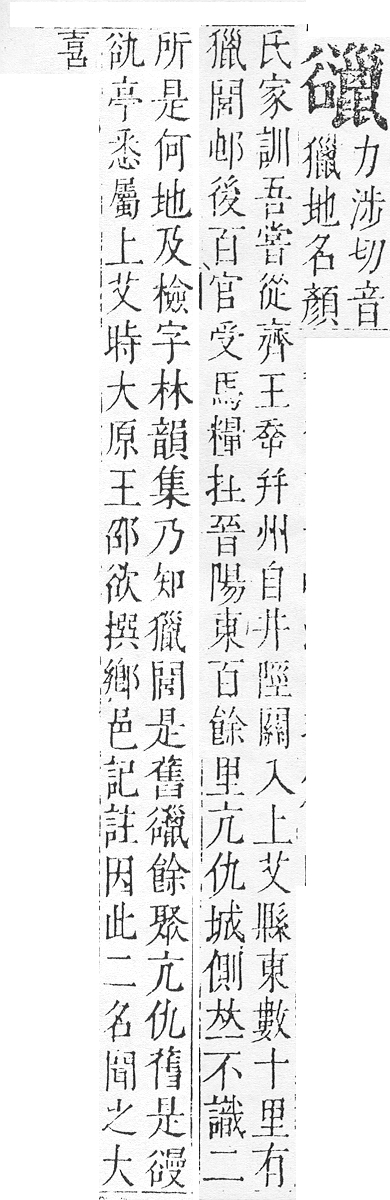 䜲
力涉切音
獵地名顏
氏家訓吾嘗從齊王㚔幷州自井陘關入上艾縣東數十里有
獵閭邨後百官受馬糧在晉陽東百餘里亢仇城側𠀤不識二
所是何地及檢字林韻集乃知獵閭是舊䜲餘聚亢仇舊是䜱
䜪亭悉屬上艾時大原王邵欲撰鄉邑記註因此二名聞之大
喜